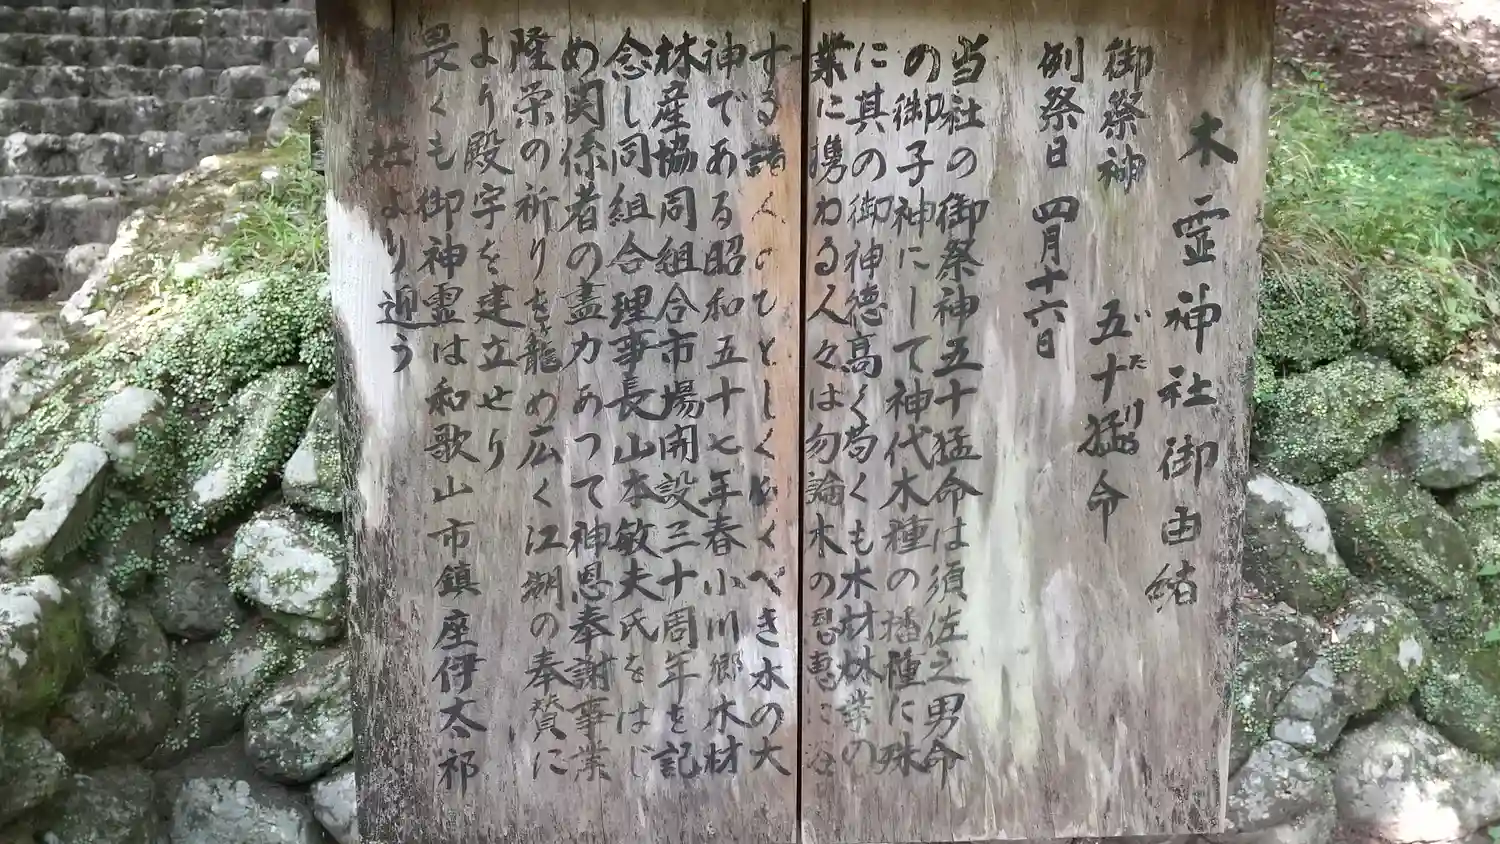 木霊神社御由緒
御祭神 五十猛命
いたける
例祭日 四月十六日
当社の御祭神五十猛命は須佐之男命
の御子神にして神代木種の播種に殊
に其の御神徳高く苟くも木材林業の
業に携わる人々は勿論木の恩恵に浴
する諸人のひとしくゆくべき木の大
神である昭和五十七年春小川郷木材
林産協同組合市場開設三十周年を記
念し同組合理事長山本敏夫氏をはじ
め関係者の盡力あつて神恩奉謝事業
隆栄の祈りを籠め広く江湖の奉賛に
より殿宇を建立せり
畏くも御神霊は和歌山市鎮座伊太祁
社より迎う